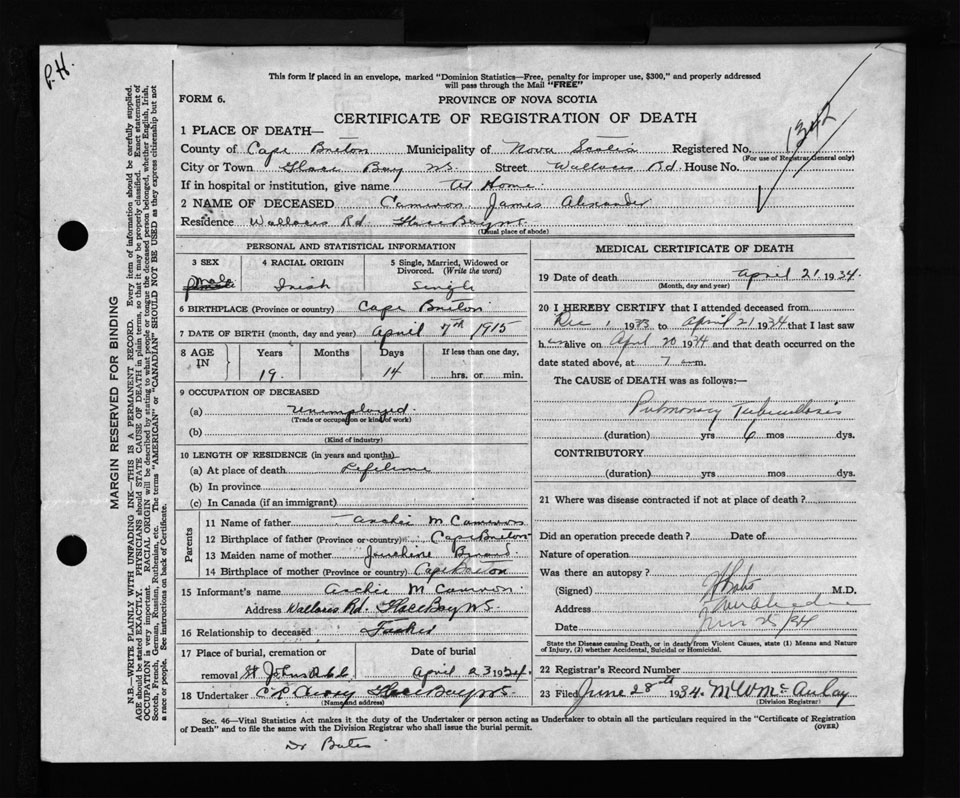 P.H.
This form if placed in an envelope, marked "Dominion Statistics—Free, penalty for improper use, $300," and properly addressed
will pass through the Mail "FREE"
FORM 6. PROVINCE OF NOVA SCOTIA
CERTIFICATE OF REGISTRATION OF DEATH
1342
1 PLACE OF DEATH—
County of Cape Breton Municipality of Nova Scotia Registered No.
(For use of Registrar General only)
City or Town Glace Bay NS Street Wallaces Rd. House No.
If in hospital or institution, give name At Home.
2 NAME OF DECEASED Cameron James Alexander
Residence Wallaces Rd Glace Bay NS
(Usual place of abode)
PERSONAL AND STATISTICAL INFORMATION
3 SEX 4 RACIAL ORIGIN 5 Single, Married, Widowed or Divorced. (Write the word)
male Irish Single
6 BIRTHPLACE (Province or country) Cape Breton
7 DATE OF BIRTH (month, day and year) April 7th 1915
8 AGE IN Years Months Days If less than one day,
19. 14 hrs. or min.
9 OCCUPATION OF DECEASED
(a) Unemployed.
(Trade or occupation or kind of work)
(b)
(Kind of industry)
10 LENGTH OF RESIDENCE (in years and months)
(a) At place of death Lifetime
(b) In province
(c) In Canada (if an immigrant)
Parents
11 Name of father Archie M Cameron
12 Birthplace of father (Province or country) Cape Breton
13 Maiden name of mother
14 Birthplace of mother (Province or country) Cape Breton
15 Informant's name Archie M Cameron
Address Wallaces Rd. Glace Bay NS.
16 Relationship to deceased Father
17 Place of burial, cremation or removal St Johns Date of burial April 23 1934.
18 Undertaker Glace Bay NS
(Name and address)
MEDICAL CERTIFICATE OF DEATH
19 Date of death April 21 1934.
(Month, day and year)
20 I HEREBY CERTIFY that I attended deceased from
Dec 1 1933 to April 21 1934 that I last saw
h im alive on April 20 1934 and that death occurred on the
date stated above, at 7 a m.
The CAUSE of DEATH was as follows:—
Pulmonary Tuberculosis
(duration) yrs 6 mos dys.
CONTRIBUTORY
(duration) yrs mos dys.
21 Where was disease contracted if not at place of death?
Did an operation precede death? Date of
Nature of operation
Was there an autopsy?
(Signed) Bates M.D.
Address
Date 25/34
State the Disease causing Death, or in death from Violent Causes, state (1) Means and Nature
of Injury, (2) whether Accidental, Suicidal or Homicidal.
22 Registrar's Record Number
23 Filed June 28th 1934. M W McAulay
(Division Registrar)
Sec. 46—Vital Statistics Act makes it the duty of the Undertaker or person acting as Undertaker to obtain all the particulars required in the "Certificate of Registration
of Death" and to file the same with the Division Registrar who shall issue the burial permit.
(OVER)
Dr Bates
MARGIN RESERVED FOR BINDING
N.B.—WRITE PLAINLY WITH UNFADING INK—THIS IS A PERMANENT RECORD. Every item of information should be carefully supplied.
AGE should be stated EXACTLY. PHYSICIANS should STATE CAUSE OF DEATH in plain terms, so that it may be properly classified. Exact statement of
OCCUPATION is very important. RACIAL ORIGIN will be described by stating to what people or tongue the deceased person belonged, whether English, Irish,
Scotch, French, German, Russian, Ruthenian, etc. The terms "AMERICAN" or "CANADIAN" SHOULD NOT BE USED as they express citizenship but not
a race or people. See instructions on back of Certificate.